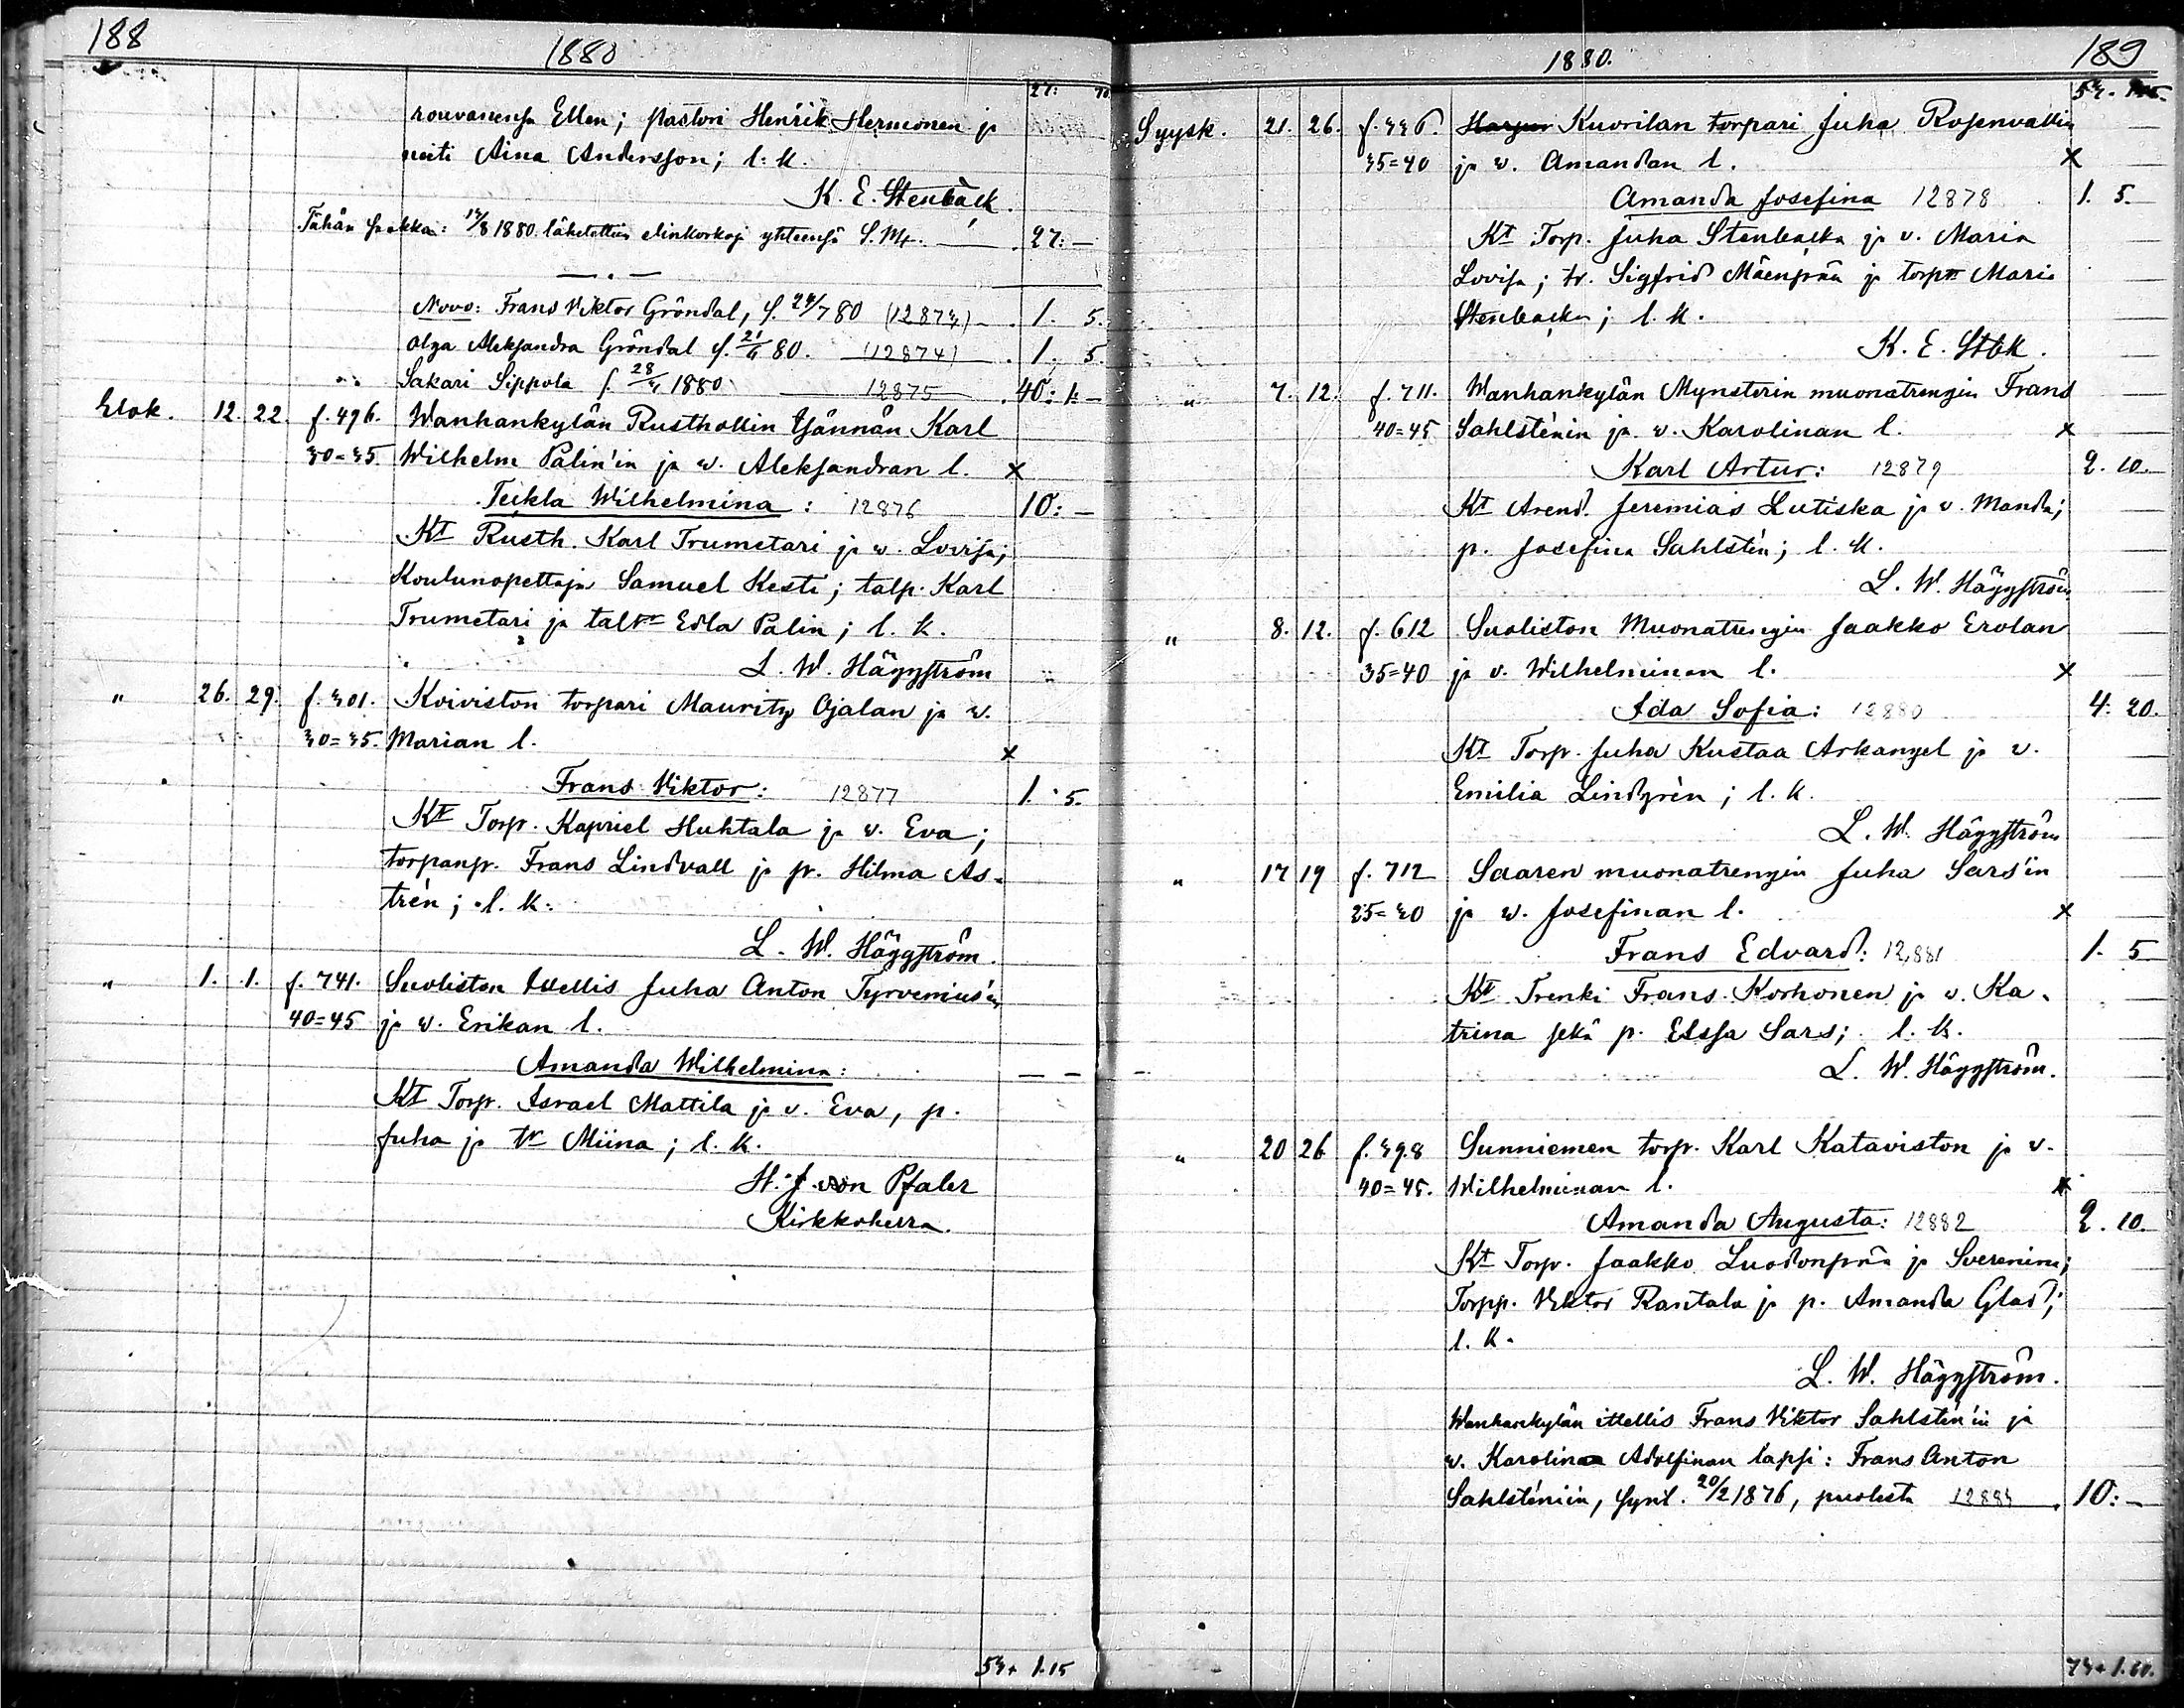 188
1880
27: 70
rouvanensa Ellen; pastori Henrik Hermonen ja
neiti Aina Andersson; l. k.
K. E. Stenbäck.
Tähän saakka: 14/8 1880 lähetettiin elinkorkoja yhteensä S. Mk. 27: —
Novo: Frans Viktor Gröndal, s. 24/7 80 (12873) 1. 5.
Olga Aleksandra Gröndal s. 21/6 80. (12874) 1. 5.
Sakari Sippola s. 28/3 1880 12875 40: 1. —
Elok. 12. 22. f. 496. Wanhankylän Rusthollin tjännän Karl
30=35. Wilhelm Palin'in ja w. Aleksandran l. x
Teikla Wilhelmina: 12876 10: —
Kt Rusth. Karl Trumetari ja w. Lovisa;
Koulunopettaja Samuel Kesti; talp. Karl
Trumetari ja taltr Edla Palin; l. k.
L. W. Häggström
" 26. 29. f. 301. Koiviston torpari Mauritz Ojalan ja w.
30=35. Marian l. x
Frans Viktor: 12877 1. 5.
Kt Torp. Kapriel Huhtala ja w. Eva;
torpanp. Frans Lindvall ja p. Hilma As-
trén; l. k.
L. W. Häggström.
" 1. 1. f. 741. Suoliston Itellis Juha Anton Tyrvenius'in
40=45 ja w. Erikan l.
Amanda Wilhelmina: — —
Kt Torp. Israel Mattila ja v. Eva, p.
Juha ja tr Miina; l. k.
H. J. von Pfaler
Kirkkoherra.
53+1.15
1880.
189
53.
Syysk. 21. 26. f. 336. Harjun Kuorilan torpari Juha Rosenvallin
35=40 ja w. Amandan l. x
Amanda Josefina 12878 1. 5.
Kt Torp. Juha Stenbacka ja v. Maria
Lovisa; tr. Sigfrid Mäenpää ja torptr Maria
Stenbacka; l. k.
K. E. Stbk.
" 7. 12. f. 711. Wanhankylän Mynsterin muonatrengin Frans
40=45 Sahlsténin ja w. Karolinan l. x
Karl Artur: 12879 2. 10.
Kt Arend. Jeremias Lutiska ja v. Manda;
p. Josefina Sahlstén; l. k.
L. W. Häggström
" 8. 12. f. 612 Suoliston Muonatrengin Jaakko Erolan
35=40 ja v. Wilhelminan l. x
Ida Sofia: 12880 4. 20.
Kt Torp. Juha Kustaa Arkangel ja v.
Emilia Lindgrén; l. k.
L. W. Häggström
" 17 19 f. 712 Saaren muonatrengin Juha Sars'in
25=30 ja w. Josefinan l. x
Frans Edvard: 12,881 1. 5
Kt Trenki Frans Korhonen ja v. Ka-
trina sekä p. Elssa Sars; l. k.
L. W. Häggström.
" 20 26 f. 398 Sunniemen torp. Karl Kataviston ja v.
40=45. Wilhelminan l. x
Amanda Augusta: 12882 2. 10.
Kt Torp. Jaakko Luodonpää ja Severiina;
Torpp. Viktor Rantala ja p. Amanda Glad;
l. k.
L. W. Häggström.
Wanhankylän itellis Frans Viktor Sahlstén'in ja
w. Karolina Adolfinan lapsi: Frans Anton
Sahlsténiin, synt. 20/2 1876, puolesta 12883 10: —
73+1.60.